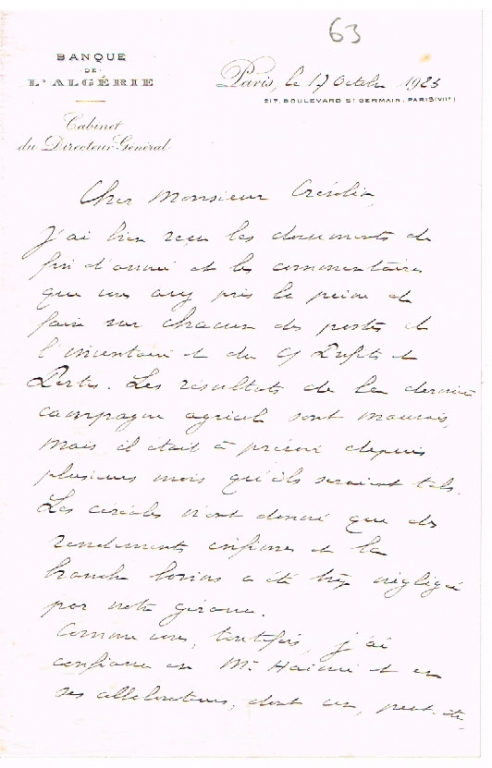 63
BANQUE
DE
L'ALGÉRIE
Cabinet
du Directeur Général
Paris, le 17 Octobre 1925
217, BOULEVARD ST GERMAIN, PARIS (VIIe)
Cher Monsieur
J'ai bien reçu les documents de
fin d'année et les commentaires
que vous avez pris la peine de
faire sur chacun des postes de
l'inventaire et du Cte Profits et
Pertes. Les résultats de la dernière
campagne agricole sont mauvais,
mais il était à prévoir depuis
plusieurs mois qu'ils seraient tels.
Les céréales n'ont donné que des
rendements infimes et la
branche bovins a été très négligée
par notre gérance.
Comme vous, toutefois, j'ai
confiance en Mr. et en
ses collaborateurs, dont un, peut-être